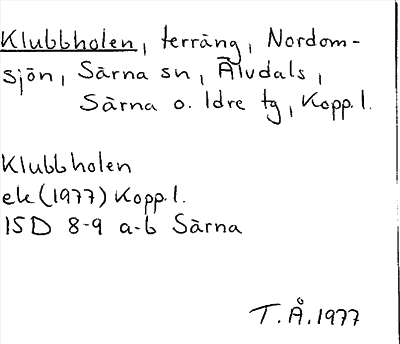 Klubbholen, terräng, Nordom-
sjön, Särna sn, Älvdals,
Särna o. Idre tg, Kopp.l.
Klubbholen
ek (1977) Kopp.l.
15D 8-9 a-b Särna
T.Å.1977